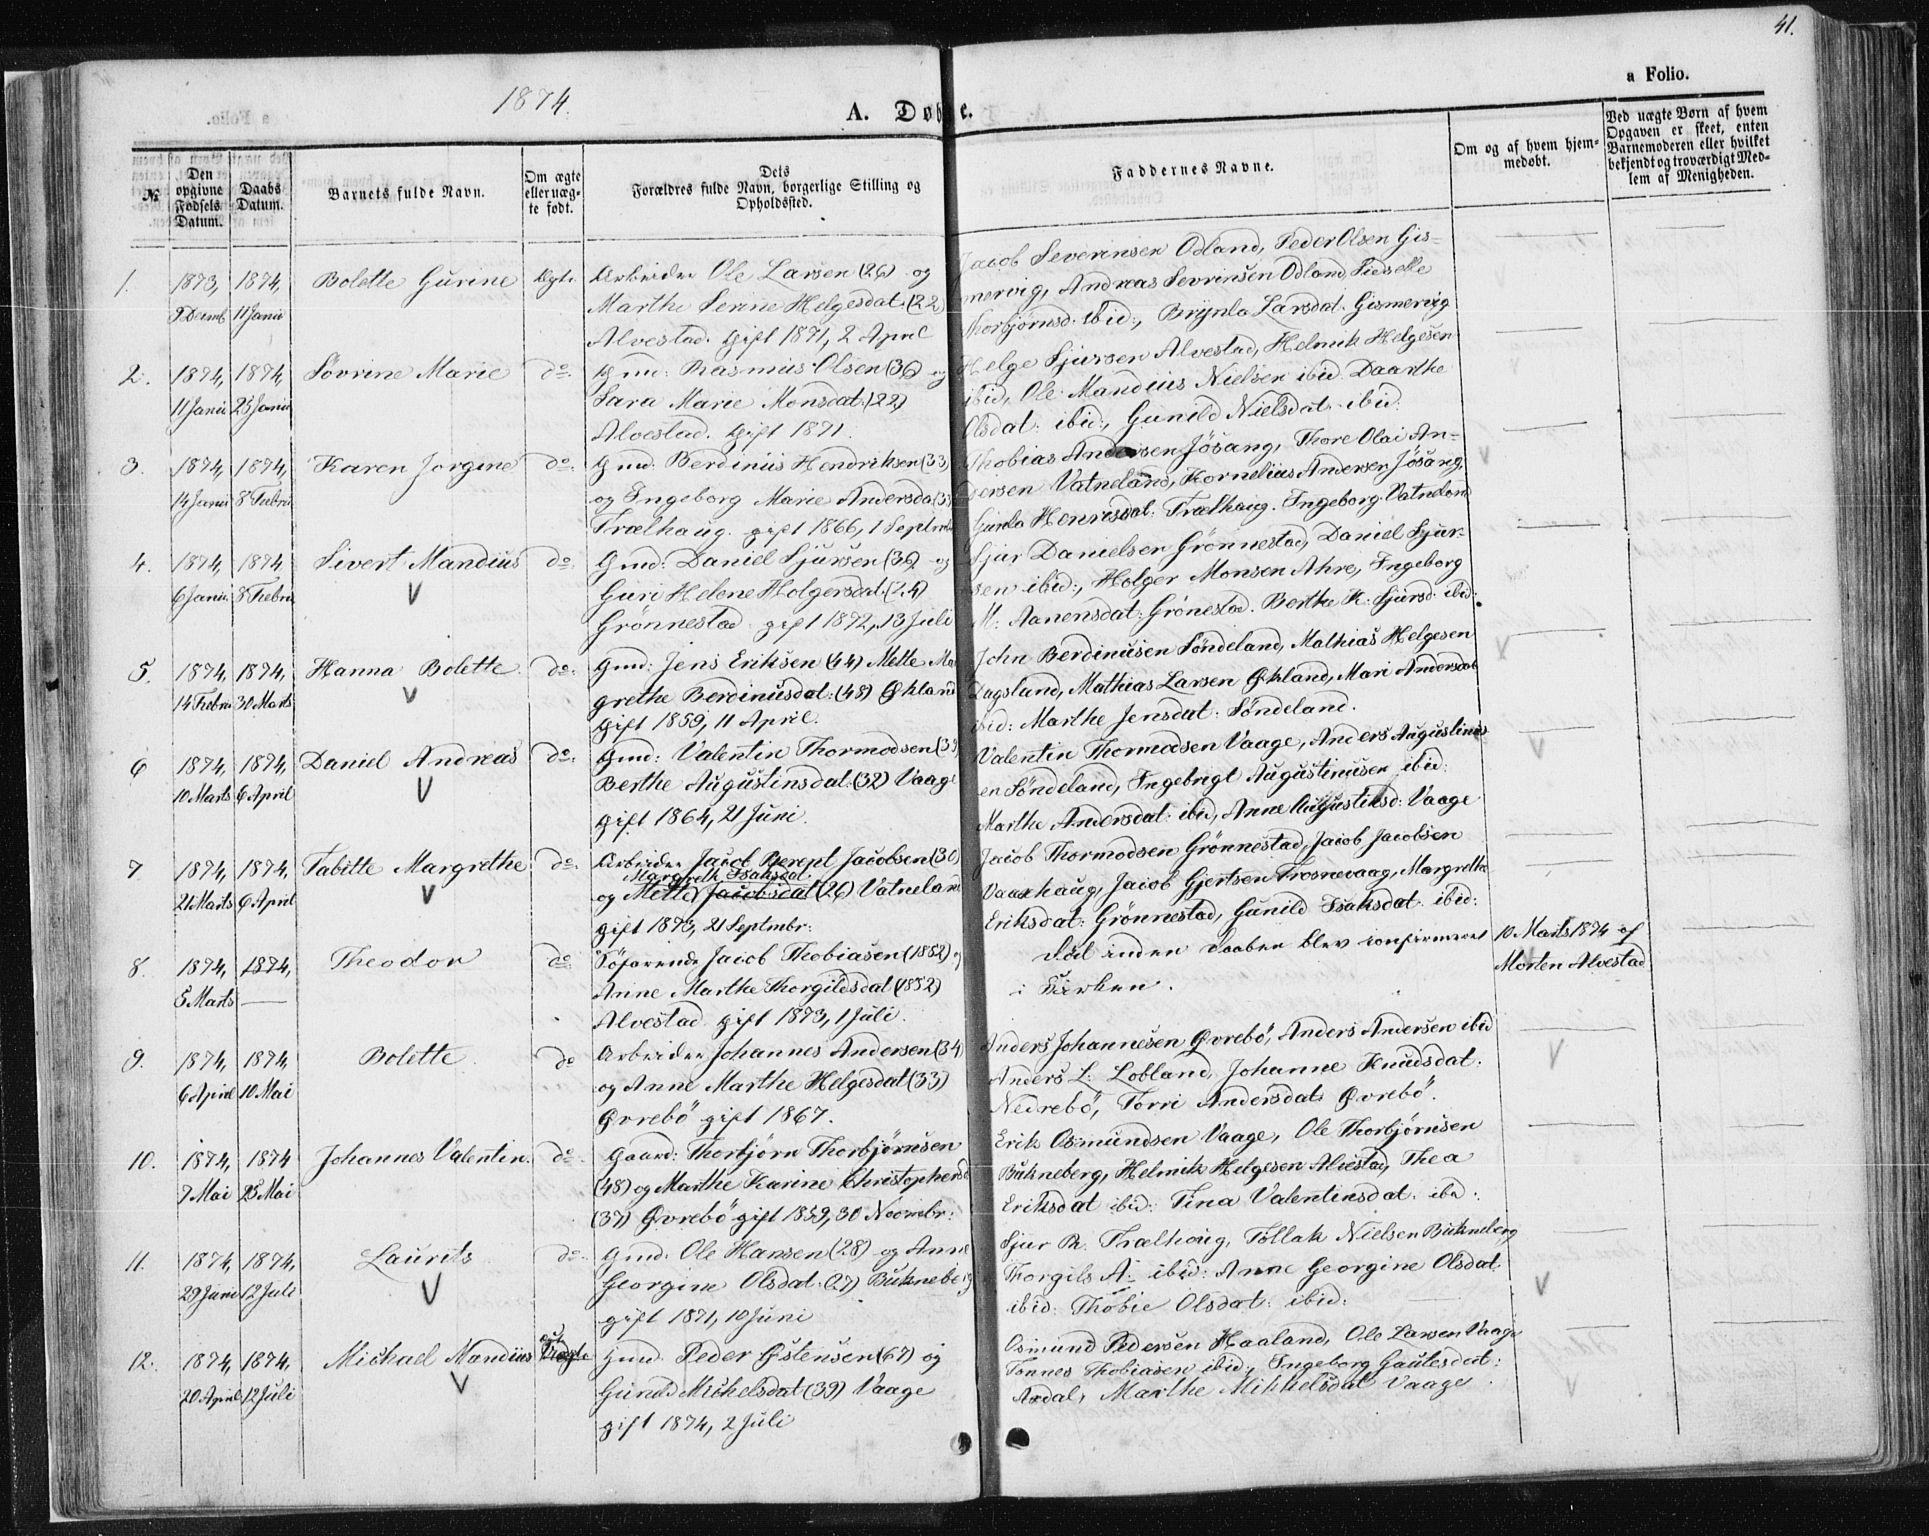 41.
1874.
A. Døbte.
a Folio.
№
Den opgivne Fødsels Datum.
Daabs Datum.
Barnets fulde Navn.
Om ægte eller uægte født.
Dets Forældres fulde Navn, borgerlige Stilling og Opholdssted.
Faddernes Navne.
Om og af hvem hjemmedøbt.
Ved uægte Børn af hvem Opgaven er skeet, enten Barnemoderen eller hvilket bekjendt og troværdigt Medlem af Menigheden.
1. 1873, 1874, Bolette Gurine Ægte Arbeider Ole Larsen (26) og
9 Decemb 11 Janu Marthe Serine Helgesdat. (22)
Alvestad. gift 1871, 2 April
Jacob Severinsen Odland, Peder Olsen Gis-
mervig, Andreas Sevrinsen Odland
Thorbjørnsd. ibid:, Brynla Larsdat. Gismervig
2. 1874, 1874, Sövrine Marie do. Gmd: Rasmus Olsen (36) og
11 Janu 25 Janu Sara Marie Monsdat. (22)
Alvestad. gift 1871.
Helge Sjursen Alvestad, Helmik Helgesen
ibid, Ole Mandius Nielsen ibid. Daarthe
Olsdat: ibid:, Gunild Nielsdat ibid.
3. 1874, 1874, Karen Jorgine do. Gmd. Berdinus Hendriksen (33)
14 Janu 8 Febru og Ingeborg Marie Andersda
Trælhaug. gift 1866, 1 Septmb
Thobias Andersen Jösang, Thore Olai An-
dersen Vatneland, Kornelius Andersen Jösang,
Gunla Henrisdat. Trælhaug. Ingeborg Vatneland
4. 1874, 1874 Sivert Mandius do. Gmd: Daniel Sjursen (36) og
6 Janu. 8 Febru V Guri Helene Holgersdat. (24)
Grönnestad gift 1872, 13 Juli
Sjur Danielsen Grönnestad, Daniel Sjur-
sen ibid:, Holger Monsen Ahre, Ingeborg
M: Aanensdat: Grönestad. Berthe K. Sjursd. ibid:
5. 1874, 1874, Hanna Bolette. do. Gmd: Jens Eriksen (44) Mette Mar
14 Febru 30 Marts V grethe Berdinusdat: (48) Økland
gift 1859, 11 April.
John Berdinusen Söndeland, Mathias Helgesen
Dagsland, Mathias Larsen Økland, Mari Andersdat
ibid: Marthe Jensdat: Söndeland.
6 1874, 1874, Daniel Andreas do. Gmd: Valentin Thormodsen (39
10 Marts 6 April V Berthe Augustinsdat. (32) Vaage
gift 1864, 21 Juni.
Valentin Thormodsen Vaage, Anders Augustinus
en Söndeland, Ingebrigt Augustinusen ibid:
Marthe Andersdat: ibid, Anne Augustinsd: Vaage
7 1874, 1874, Tabitte Margrethe do. Arbeider Jacob Berent Jacobsen (30)
Margreth Isaksdat.
21 Marts 6 April V og Mette Jacobsdat (26) Vatneland
gift 1873, 21 Septmbr:
Jacob Thormodsen Grönnestad, Jacob Jacobsen
Vaarhaug, Jacob Gjertsen Trosnevaag, Margrethe
Eriksdat: Grönnestad, Gunild Isaksdat: ibid:
8. 1874, 1874, Theodor do. Söfarende Jacob Thobiasen (1852) og
5 Marts — Anne Marthe Thorgildsdat (1852)
Alvestad. gift 1873, 1 Juli.
Död inden daaben blev confirmeret
i Kirken.
10 Marts 1874 af
Morten Alvestad
9. 1874, 1874, Bolette. do Arbeider Johannes Andersen (34)
6 April 10 Mai og Anne Marthe Helgesdat (33)
Øvrebö gift 1867.
Anders Johannesen Øvrebö, Anders Andersen ibid
Anders L: Lobland, Johanne Knudsdat.
Nedrebö, Torri Andersdat. Øvrebö.
10. 1874, 1874 Johannes Valentin. do. Gaard: Thorbjörn Thorbjörnsen
7 Mai 25 Mai (48) og Marthe Karine Christophersd
(37) Øvrebö gift 1859, 30 Novmbr:
Erik Osmundsen Vaage, Ole Thorbjörnsen
Bukneberg, Helmik Helgesen Alvestad, Thea
Eriksdat ibid: Tina Valentinsdat. ibid:
11. 1874, 1874, Laurits do. Gmd: Ole Hansen (28) og Anne
29 Juni 12 Juli V Georgine Olsdat. (27) Bukneberg
gift 1871, 10 Juni
Sjur R. Trælhoug, Tollak Nielsen Bukneberg
Thorgils A: ibid: Anne Georgine Olsdat.
ibid: Thobie Olsdat: ibid:
12. 1874, 1874, Michael Mandius Uægte Gmd. Peder Østensen (67) og
20 April 12 Juli V Gunild Michelsdat (39) Vaage
gift 1874, 2 Juli
Osmund Pedersen Haaland, Ole Larsen Vaage
Tönnes Thobiasen ibid:, Ingeborg Gautesdat:
Axdal, Marthe Mikkelsdat Vaage.